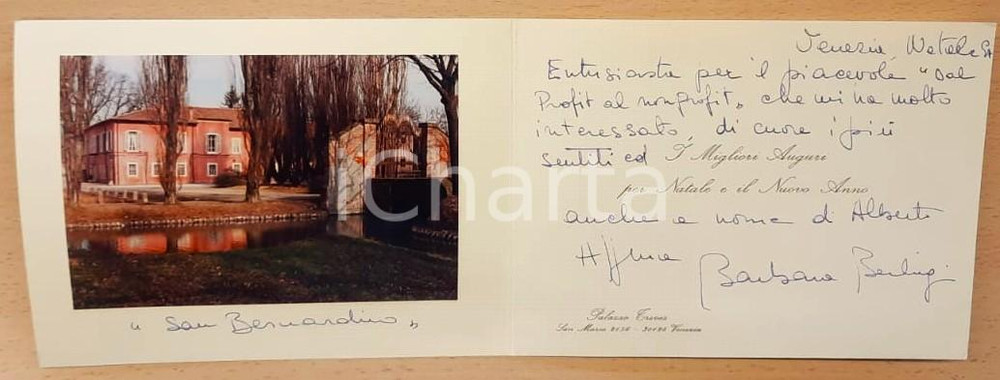 " San Bernardino "
Venezia Natale 94
Entusiasta per il piacevole "Dal
Profit al nonprofit", che mi ha molto
interessato, di cuore i più
sentiti ed I Migliori Auguri
per Natale e il Nuovo Anno
anche a nome di Alberto
Aff.ma Barbara Berlingi
Palazzo Treves
San Marco 2156 - 30124 Venezia
iCharta